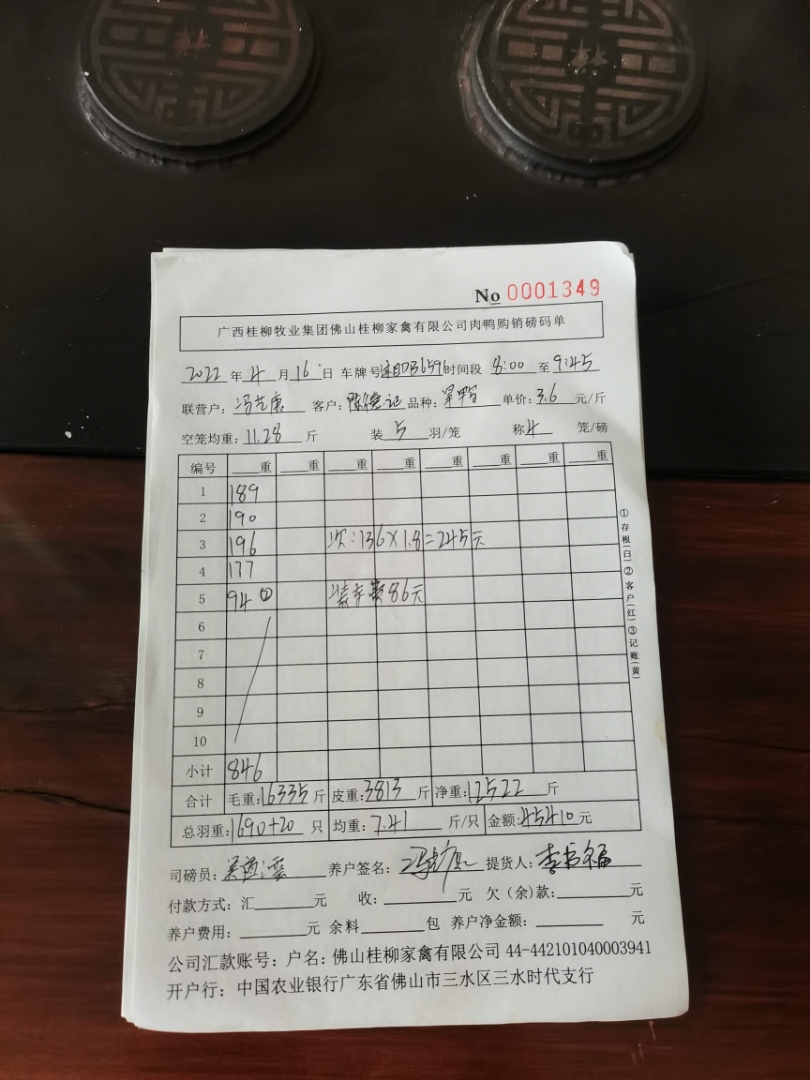 No 0001349
广西桂柳牧业集团佛山桂柳家禽有限公司肉鸭购销磅码单
2022年4月16日 车牌号 时间段 8:00 至 9:45
联营户: 客户: 品种: 单价:3.6 元/斤
空笼均重:11.28 斤 装 5 羽/笼 称 4 笼/磅
编号 重 重 重 重 重 重 重 重
1 189
2 190
3 196 次:136×1.8=245元
4 177
5 94② 装车费86元
6
7
8
9
10
小计 846
合计 毛重:16335斤 皮重:3813斤 净重:12522斤
总羽重:1690+20 只 均重:7.41 斤/只 金额:45410元
司磅员: 养户签名: 提货人:
付款方式:汇 元 收: 元 欠(余)款: 元
养户费用: 元 余料 包 养户净金额: 元
公司汇款账号:户名:佛山桂柳家禽有限公司 44-442101040003941
开户行:中国农业银行广东省佛山市三水区三水时代支行
①存根(白)②客户(红)③记账(黄)